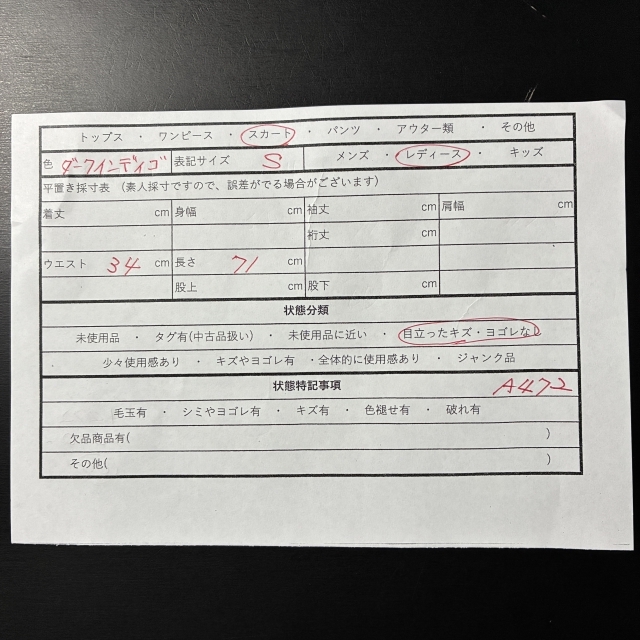 トップス ・ ワンピース ・ スカート ・ パンツ ・ アウター類 ・ その他
色 ダークインディゴ 表記サイズ S メンズ ・ レディース ・ キッズ
平置き採寸表 （素人採寸ですので、誤差がでる場合がございます）
着丈 cm 身幅 cm 袖丈 cm 肩幅 cm
裄丈 cm
ウエスト 34 cm 長さ 71 cm
股上 cm 股下 cm
状態分類
未使用品 ・ タグ有(中古品扱い) ・ 未使用品に近い ・ 目立ったキズ・ヨゴレなし
少々使用感あり ・ キズやヨゴレ有 ・全体的に使用感あり ・ ジャンク品
状態特記事項 A472
毛玉有 ・ シミやヨゴレ有 ・ キズ有 ・ 色褪せ有 ・ 破れ有
欠品商品有( )
その他( )